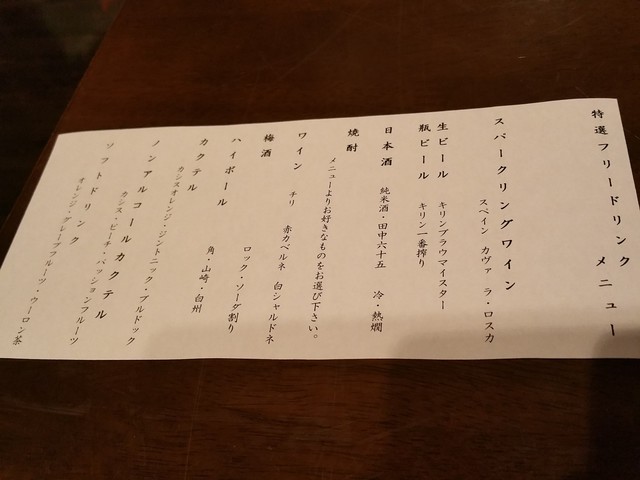 特選フリードリンク メニュー
スパークリングワイン
スペイン カヴァ ラ・ロスカ
生ビール キリンブラウマイスター
瓶ビール キリン一番搾り
日本酒 純米酒・田中六十五 冷・熱燗
焼酎
メニューよりお好きなものをお選び下さい。
ワイン チリ 赤カベルネ 白シャルドネ
梅酒 ロック・ソーダ割り
ハイボール 角・山崎・白州
カクテル
カシスオレンジ・ジントニック・ブルドック
ノンアルコールカクテル
カシス・ピーチ・パッションフルーツ
ソフトドリンク
オレンジ・グレープフルーツ・ウーロン茶